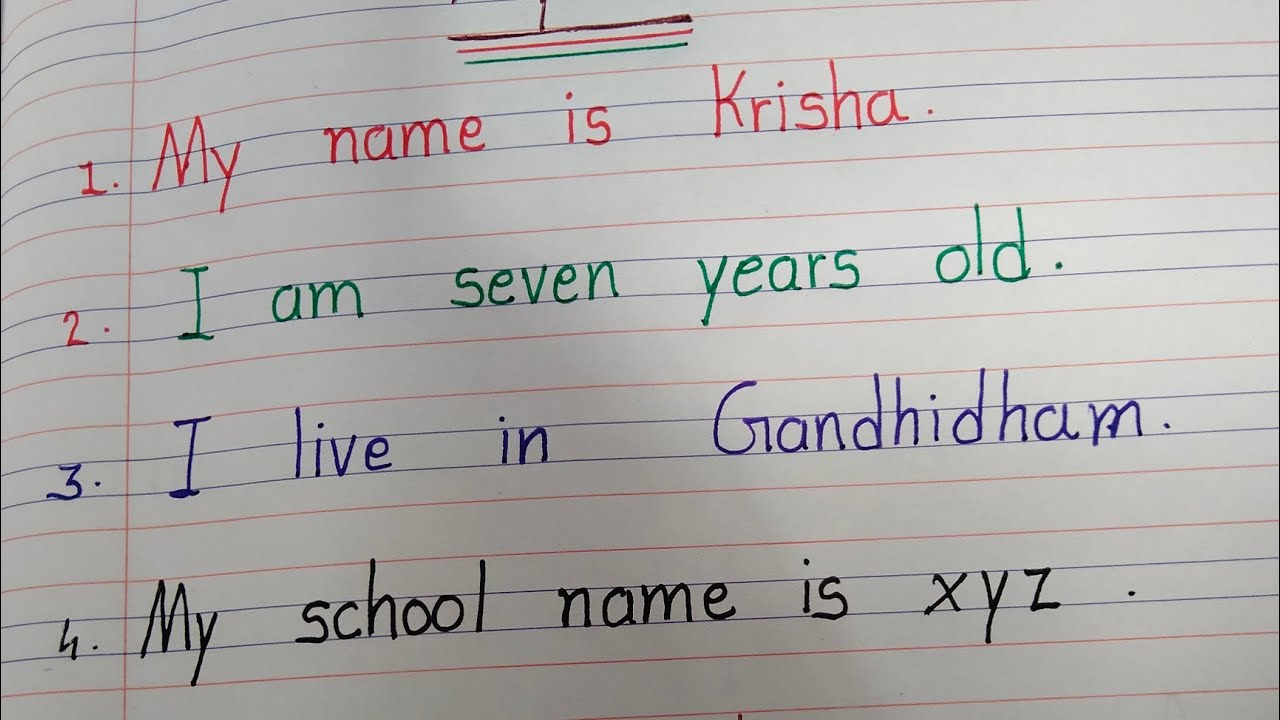 1. My name is Krisha.
2. I am seven years old.
3. I live in Gandhidham.
4. My school name is xyz.